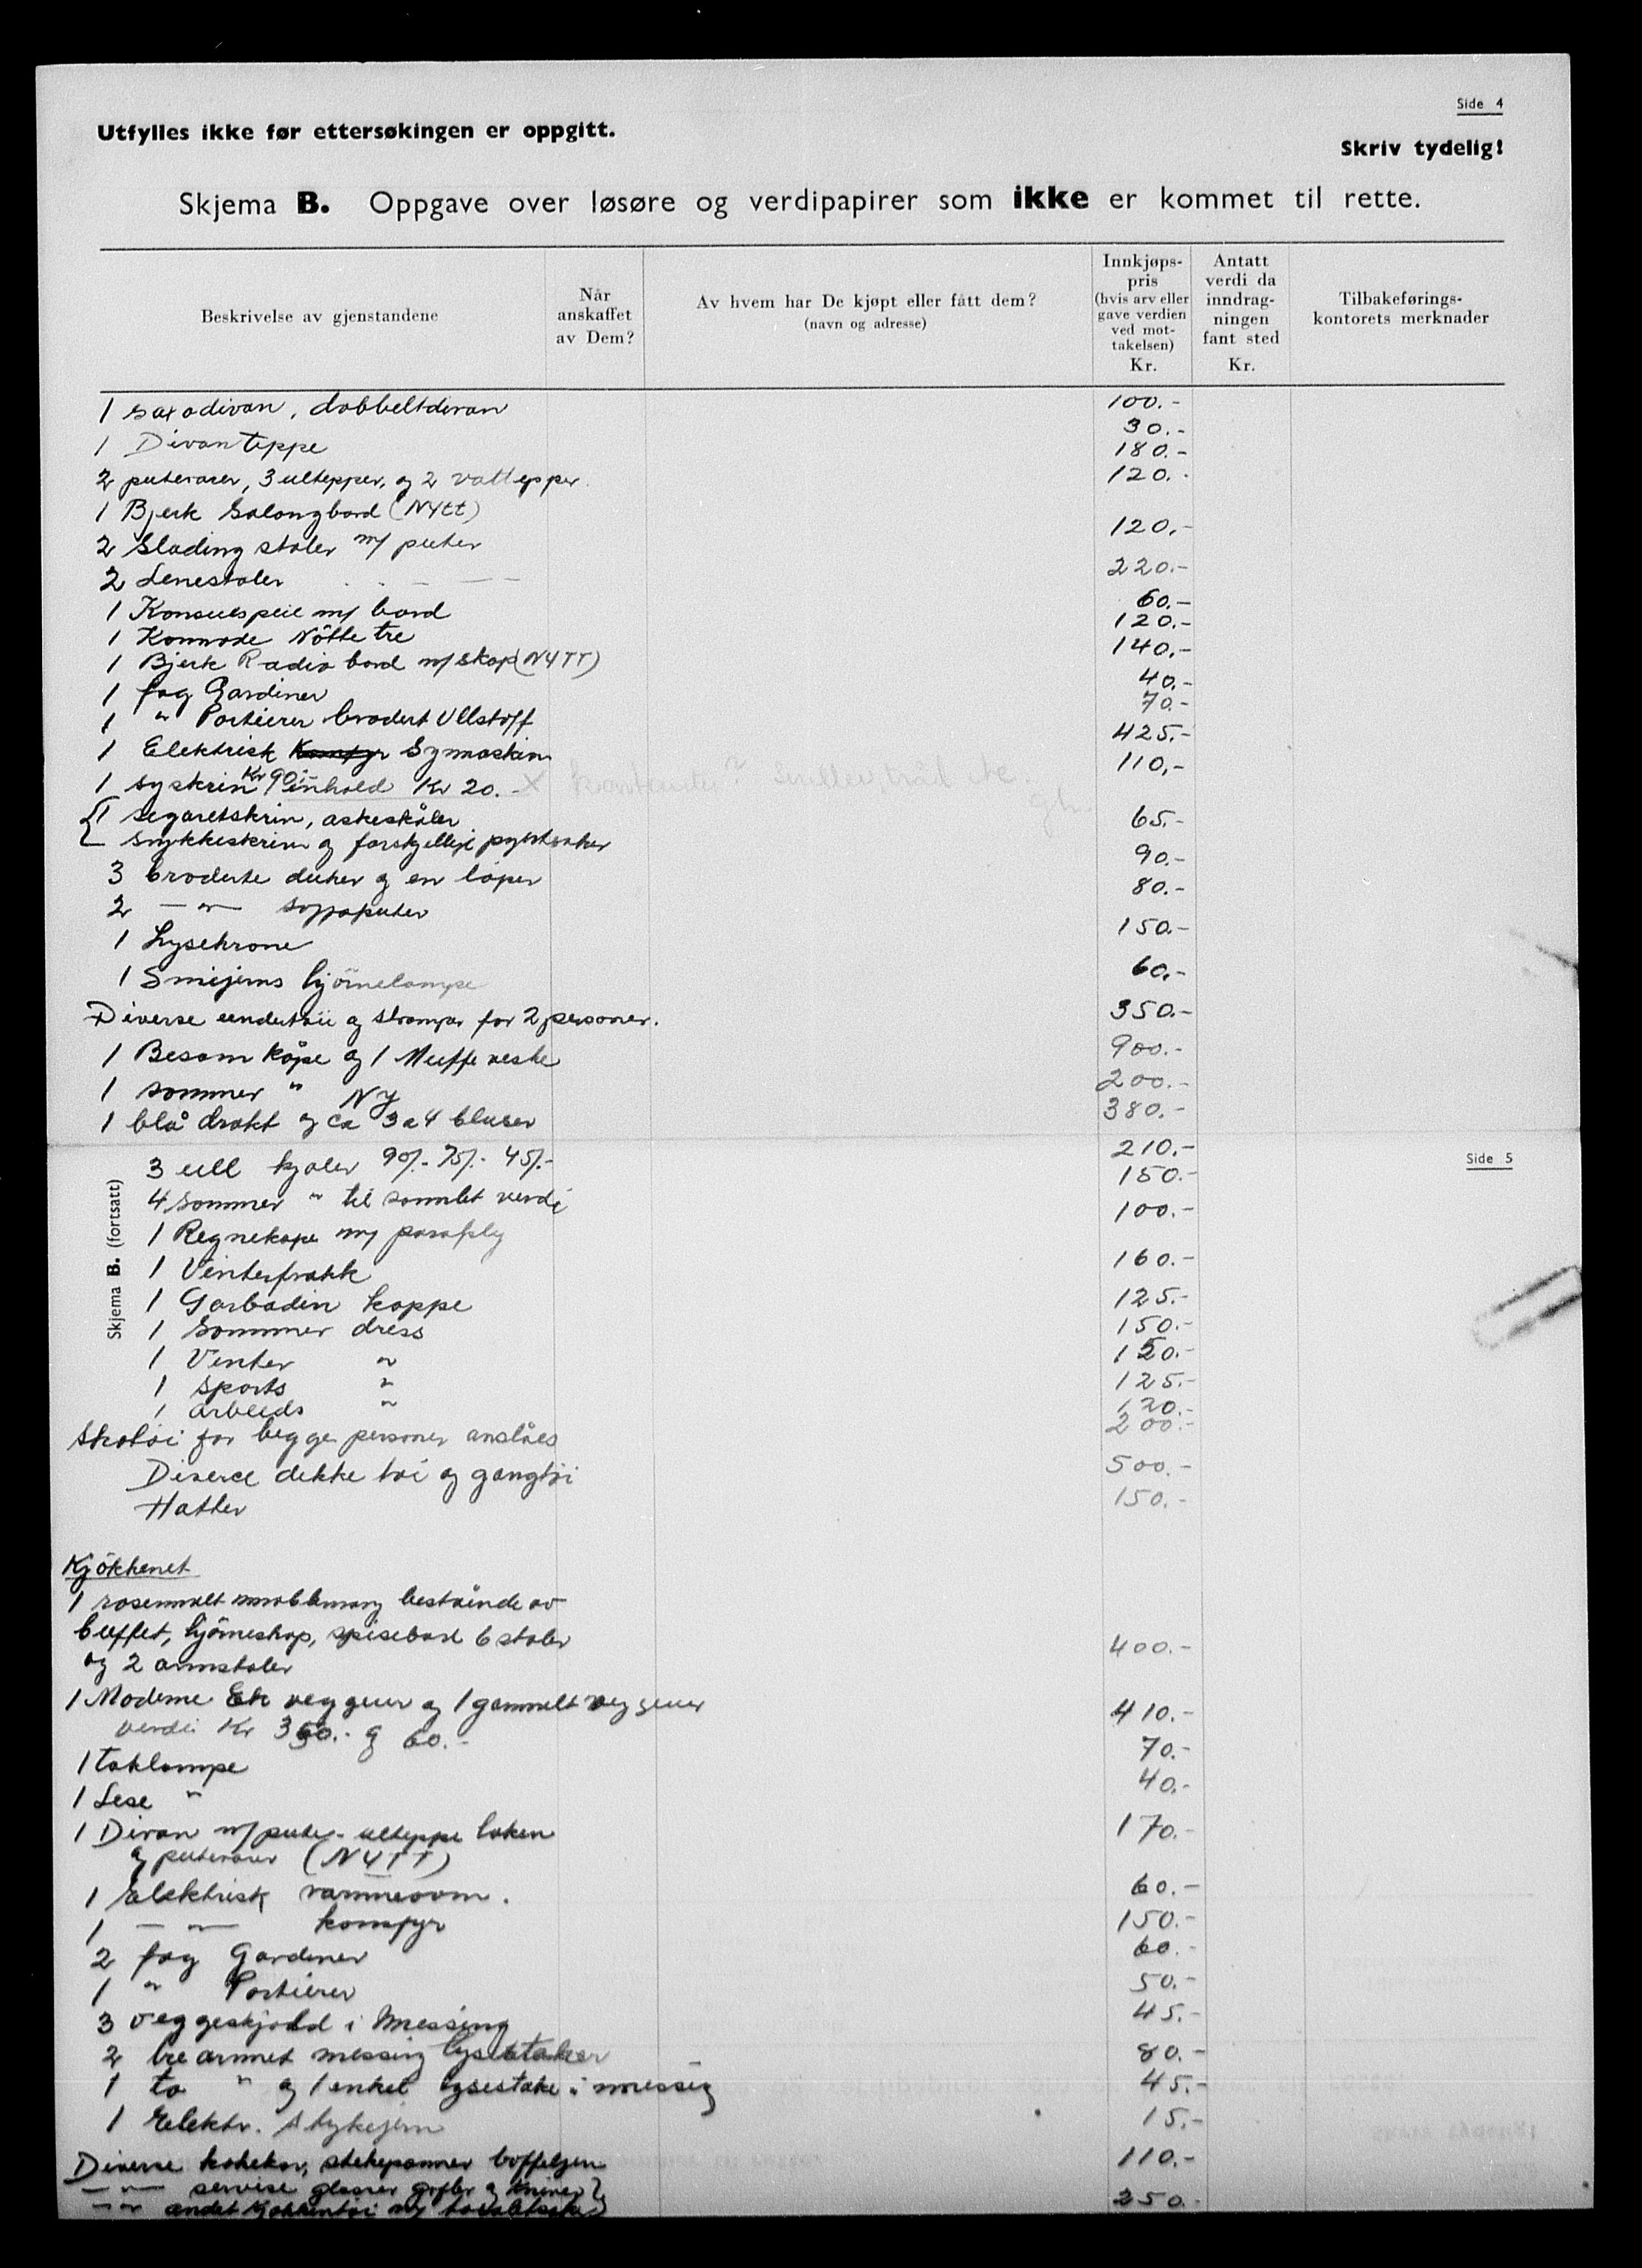 Side 4
Utfylles ikke før ettersøkingen er oppgitt.
Skriv tydelig!
Skjema B. Oppgave over løsøre og verdipapirer som ikke er kommet til rette.
Beskrivelse av gjenstandene
Når anskaffet av Dem?
Av hvem har De kjøpt eller fått dem? (navn og adresse)
Innkjøps-pris (hvis arv eller gave verdien ved mot-takelsen) Kr.
Antatt verdi da inndrag-ningen fant sted Kr.
Tilbakeførings-kontorets merknader
1 saxodivan, dobbeltdivan 100.-
1 Divanteppe 30.-
180.-
2 putevarer, 3 ultepper, og 2 vattepper 120.-
1 Bjerk Salongbord (Nytt) 120.-
2 Slading stoler m/ puter 220.-
2 Lenestoler
1 Konsulspeil m/ bord 60.-
1 Kommode Nötte tre 120.-
1 Bjerk Radio bord m/skap (NYTT) 140.-
1 fag Gardiner 40.-
1 " Portierer brodert Ullstoff 70.-
1 Elektrisk Komfyr Symaskin 425.-
1 syskrin Kr 90.- inhold Kr 20.- 110.-
1 segaretskrin, askeskåler 65.-
smykkeskrin og forskjellige pyntsaker 90.-
3 broderte duker og en löper 80.-
2 — " — sofaputer
1 Lysekrone 150.-
1 Smijerns hjörnelampe 60.-
Diverse undertöi og strömper for 2 personer. 350.-
1 Besam kåpe og 1 Muffe veske 900.-
1 sommer " Ny 200.-
1 blå drakt og ca 3 a 4 bluser 380.-
Side 5
Skjema B. (fortsatt)
3 ull kjoler 90/- 75/- 45/- 210.-
4 sommer " til samlet verdi 150.-
1 Regnekape m/ paraply 100.-
1 Vinterfrakk 160.-
1 Garbadin kappe 125.-
1 Sommer dress 150.-
1 Vinter " 150.-
1 Sports " 125.-
1 arbeids " 120.-
Skotöi for begge personer anslåes 200.-
Diverce dekke töi og gangtöi 500.-
Hatter 150.-
Kjökkenet
1 rosemalt möblemang bestående av
buffet, hjörneskap, spisebord 6 stoler
og 2 armstoler 400.-
1 Moderne Ek veggur og 1 gammelt veggur 410.-
verdi Kr 350.- og 60.-
1 taklampe 70.-
1 Lese " 40.-
1 Divan m/puter - ulteppe laken 170.-
og putevarer (NYTT)
1 Elektrisk varmeovn. 60.-
1 — " — komfyr 150.-
2 fag Gardiner 60.-
1 " Portierer 50.-
3 veggeskjold i Messing 45.-
2 tre armet messing lysestaker 80.-
1 to " og 1 enkel lysestake i messing 45.-
1 Elektr. Strykejern 15.-
Diverse kokekar, stekepanner boffeljern 110.-
— " — servise glasser gafler og kniver
— " — andet kjökkentöi 250.-